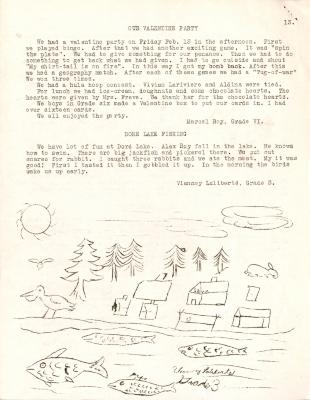 13.
OUR VALENTINE PARTY
We had a valentine party on Friday Feb. 13 in the afternoon. First
we played bingo. After that we had another exciting game. It was "spin
the plate". We had to give something for our penance. Then we had to do
something to get back what we had given. I had to go outside and shout
"My shirt-tail is on fire". In this way I got my book back. After this
we had a geography match. After each of these games we had a "Tug-of-war"
We won three times.
We had a hula hoop contest. Vivian Lariviere and Aldina were tied.
For lunch we had ice-cream, doughnuts and some chocolate hearts. The
hearts were given by Mrs. We thank her for the chocolate hearts.
We boys in Grade six made a Valentine box to put our cards in. I had
over sixteen cards.
We all enjoyed the party.
Marcel Roy, Grade VI.
DORE LAKE FISHING
We have lot of fun at Doré Lake. Alex Roy fell in the lake. He knows
how to swim. There are big jackfish and pickerel there. We put out
snares for rabbit. I caught three rabbits and we ate the meat. My it was
good! First I tasted it then I gobbled it up. In the morning the birds
wake us up early.
Vianney Laliberté, Grade 3.
Vianney Laliberté
Grade 3